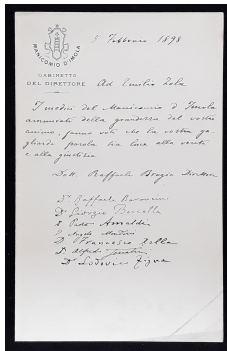 MANICOMIO D'IMOLA
GABINETTO
DEL DIRETTORE
5 Febbraio 1898
Ad Emilio Zola
I medici del Manicomio d'Imola
ammirati della grandezza del vostro
animo, fanno voti che la vostra ga-
gliarda parola sia luce alla verità
e alla giustizia
Dott. Raffaele Brugia Direttore
Dr Raffaele
Dr Ludovico
Dr Paolo
Dr Angelo
Dr Francesco
Dr Alfredo
Dr Lodovico